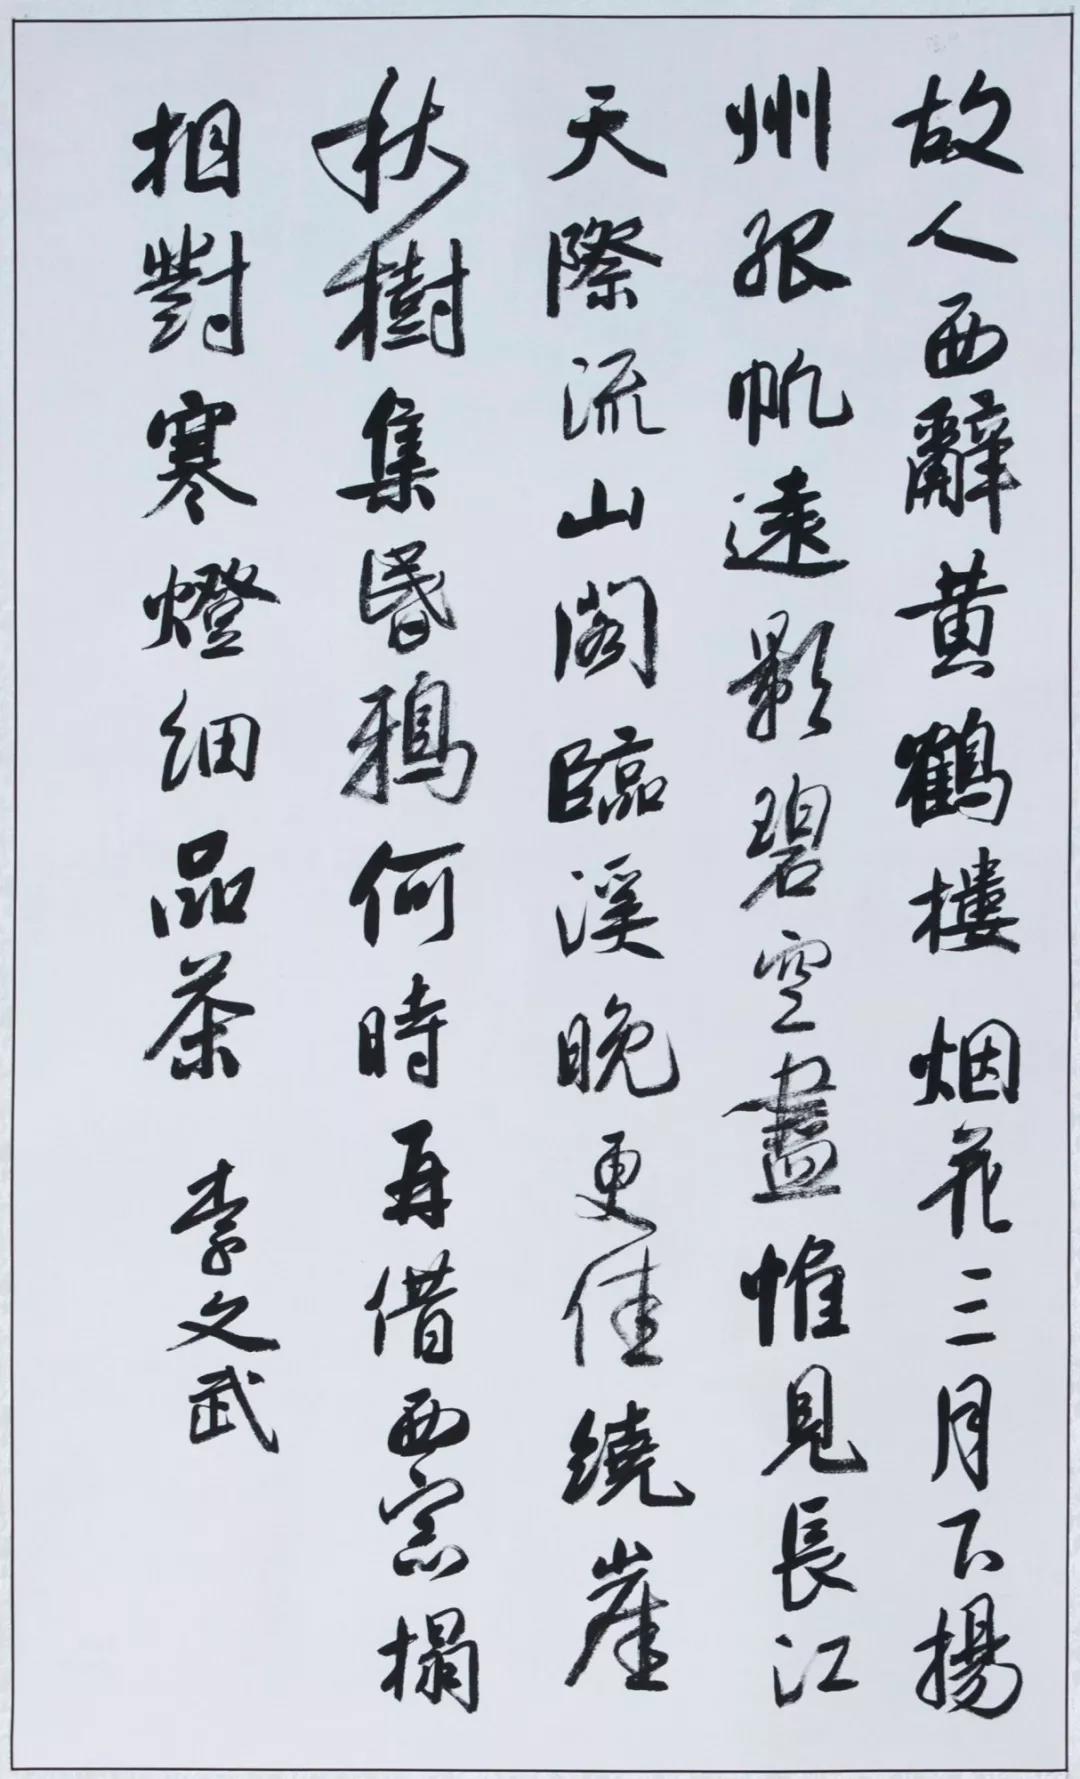 故人西辭黄鶴樓烟花三月下揚
州孤帆遠影碧空盡惟見長江
天際流山閣臨溪晚更佳繞崖
秋樹集昏鴉何時再借西窗榻
相對寒燈細品茶
李文武